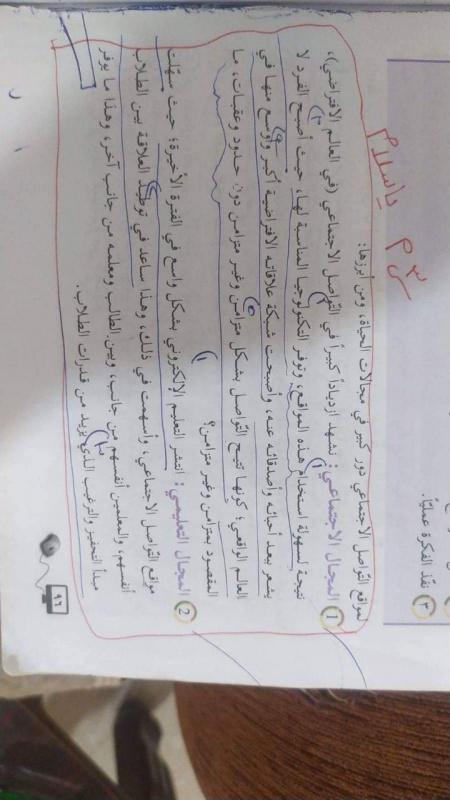 ٣ نفّذ الفكرة عمليّاً.
لمواقع التّواصل الاجتماعي دور كبير في مجالات الحياة، ومن أبرزها:
1 المجال الاجتماعي: نشهد ازدياداً كبيراً في التّواصل الاجتماعي (في العالم الافتراضي)،
نتيجة لسهولة استخدام هذه المواقع، وتوفر التكنولوجيا المناسبة لها، حيث أصبح الفرد لا
يشعر ببعد أحبائه وأصدقائه عنه، وأصبحت شبكة علاقاته الافتراضية أكبر وأوسع منها في
العالم الواقعي؛ كونها تتيح التّواصل بشكل متزامن وغير متزامن دون حدود وعقبات، ما
المقصود بمتزامن وغير متزامن؟
2 المجال التعليمي: انتشر التعليم الإلكتروني بشكل واسع في الفترة الأخيرة؛ حيث سهّلت
مواقع التّواصل الاجتماعي، وأسهمت في ذلك، وهذا ساعد في توطيد العلاقة بين الطلاب
أنفسهم، والمعلمين أنفسهم من جانب، وبين الطالب ومعلمه من جانب آخر، وهذا ما يوفر
مبدأ التحفيز والترغيب الذي يزيد من قدرات الطلاب.
٩٦